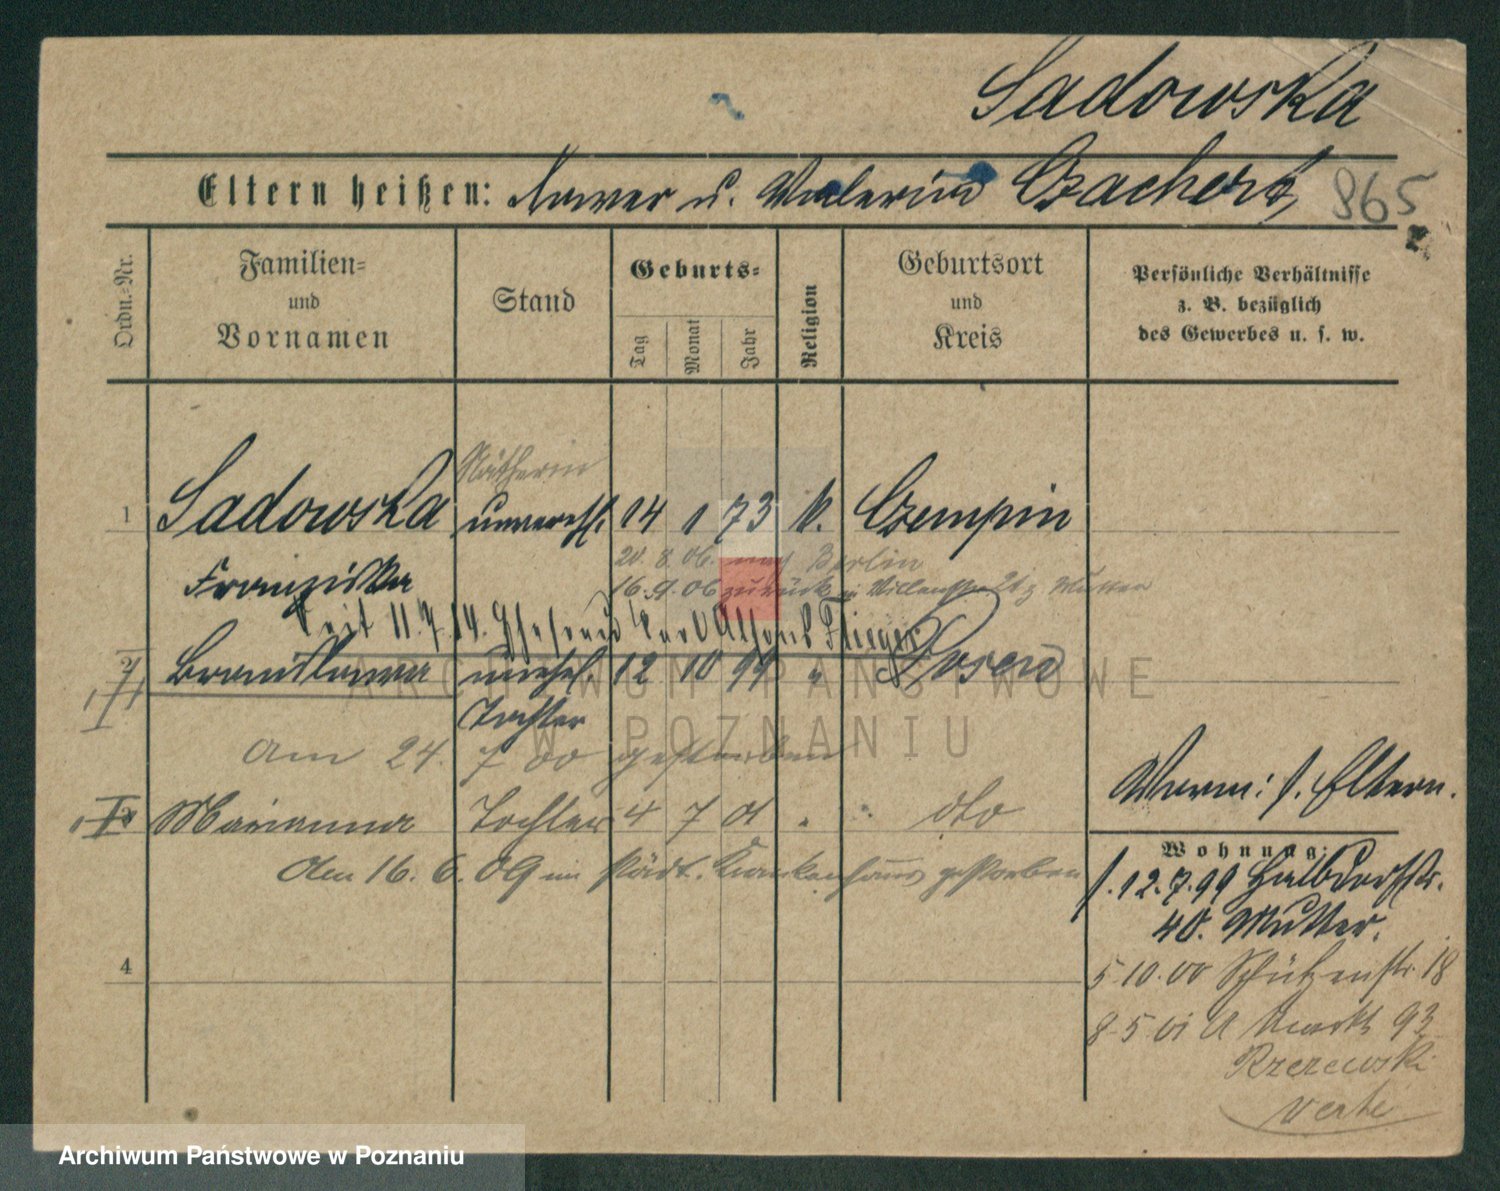 Sadowska
Eltern heißen: u. Czachert 865
Ordn.-Nr.
Familien-
und
Vornamen
Stand
Geburts-
Tag
Monat
Jahr
Religion
Geburtsort
und
Kreis
Persönliche Verhältnisse
z. B. bezüglich
des Gewerbes u. s. w.
Näherin
1 Sadowska unverehl. 14 1 73 k. Czempin
20. 8. 06. nach Berlin
Franziska 16. 9. 06 zurück
seit 11. 7. 14. Ehefrau Karl Flieger
Bronislawa unehel. 12 10 99 " Posen
Tochter
ARCHIWUM PAŃSTWOWE
W POZNANIU
am 24. 7 00 gestorben
Marianna Tochter 4 7 01 " dto
am 16. 6. 09 im städt. Krankenhaus gestorben
4
Verm: s. Eltern.
Wohnung:
s. 12.7.99 Halbdorfstr.
40. Mutter.
5.10.00 Schützenstr. 18
8.5.01 A Markt 93
Rzezewski
verte
Archiwum Państwowe w Poznaniu